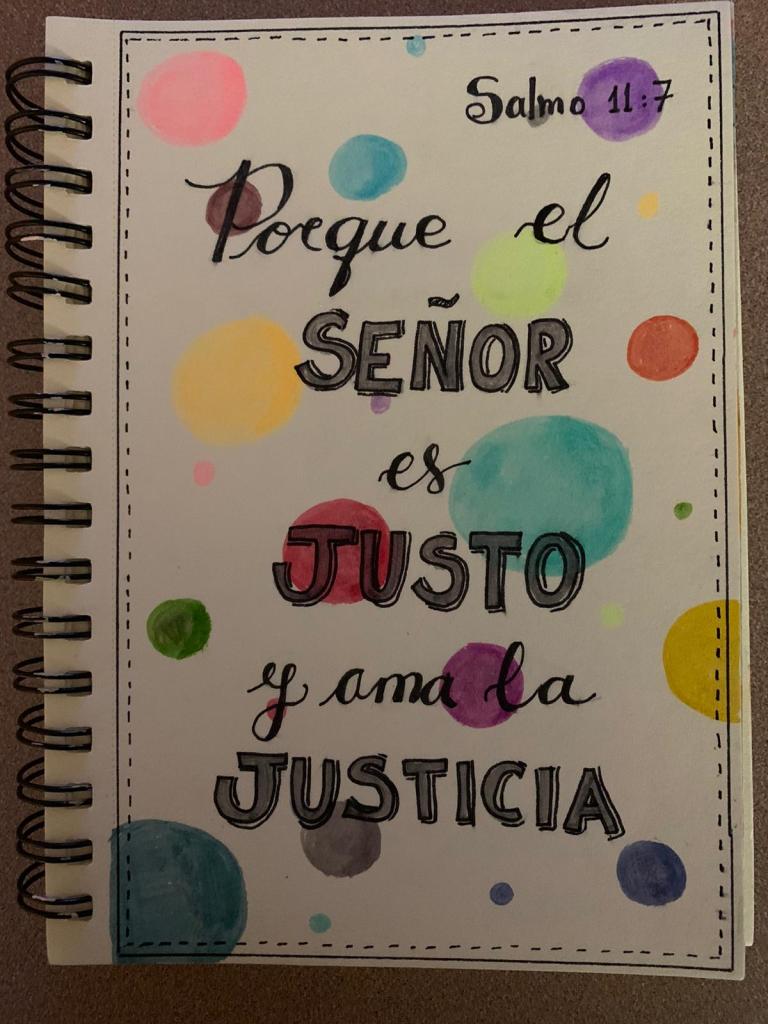 Salmo 11:7
Porque el
SEÑOR
es
JUSTO
y ama la
JUSTICIA